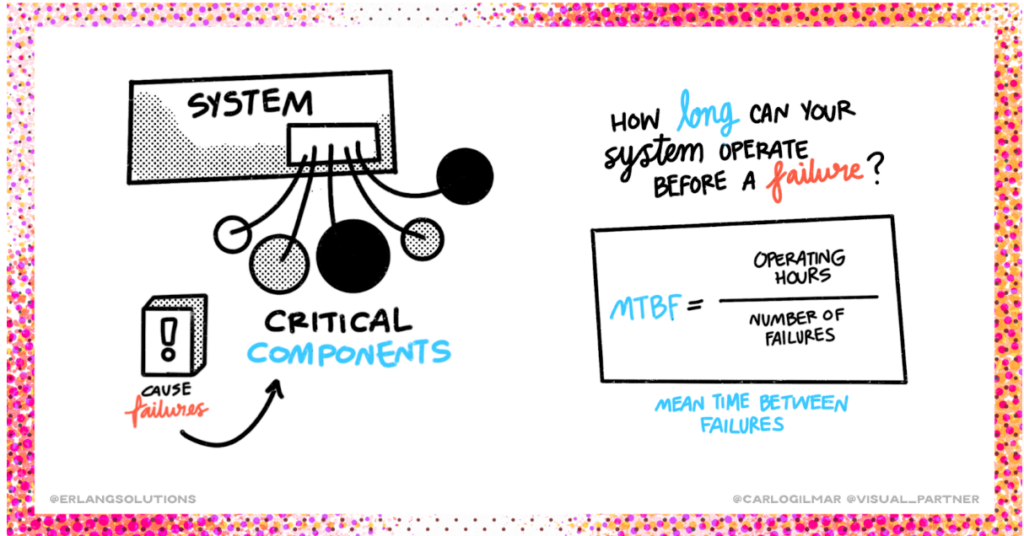 SYSTEM
CRITICAL
COMPONENTS
!
CAUSE
failures
HOW long CAN YOUR
system OPERATE
BEFORE A failure?
MTBF =
OPERATING
HOURS
NUMBER OF
FAILURES
MEAN TIME BETWEEN
FAILURES
@ERLANGSOLUTIONS
@CARLOGILMAR @VISUAL_PARTNER